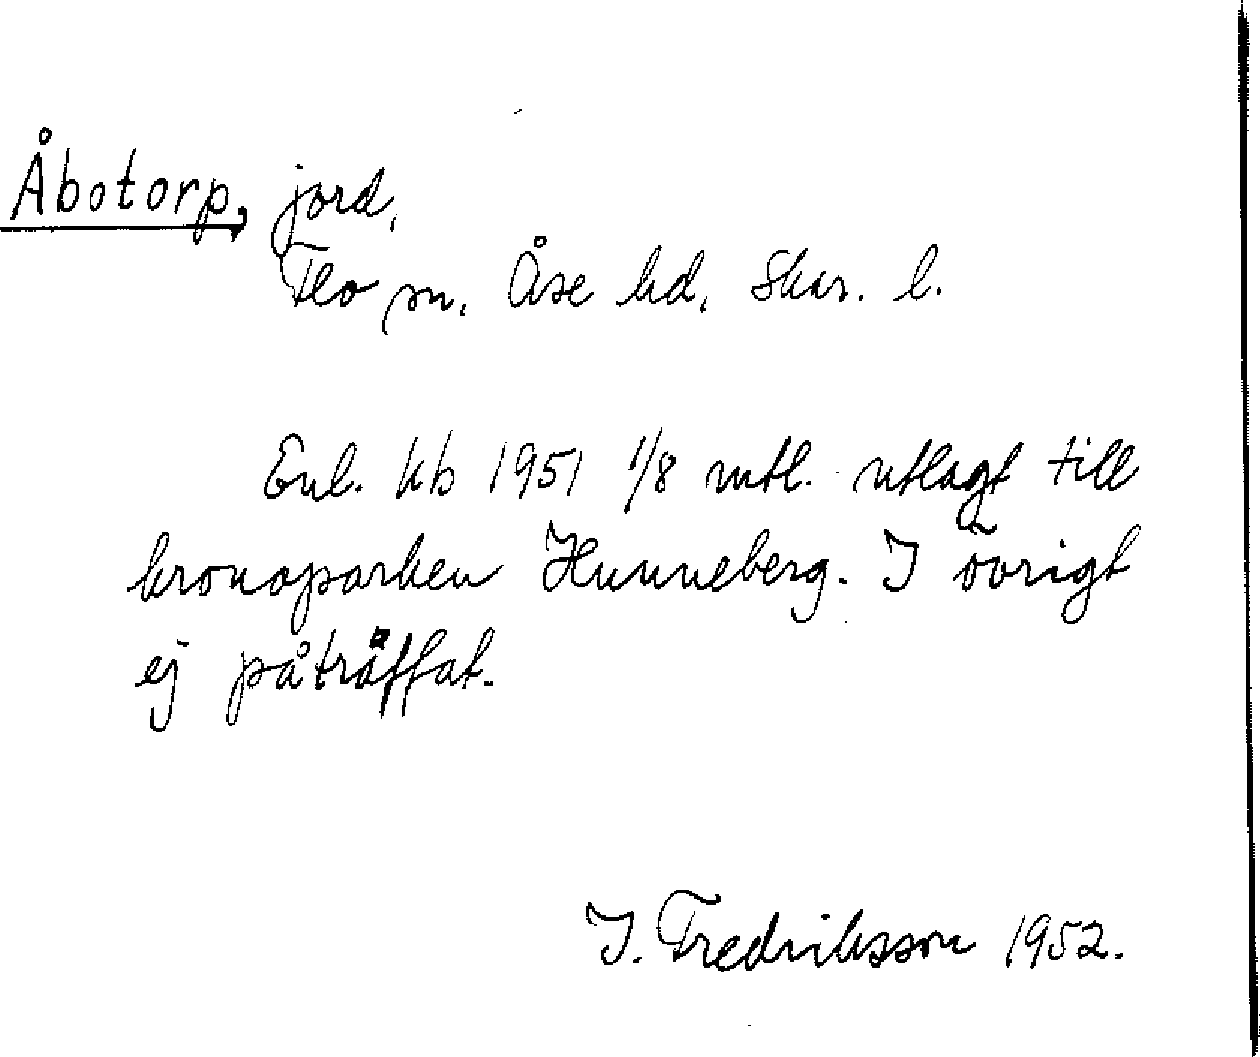 Åbotorp, jord,
Flo sn. Åse hd. Skar. l.
Enl. kb 1951 1/8 mtl. utlagt till
kronoparken Hunneberg. I övrigt
ej påträffat.
I. Fredriksson 1952.